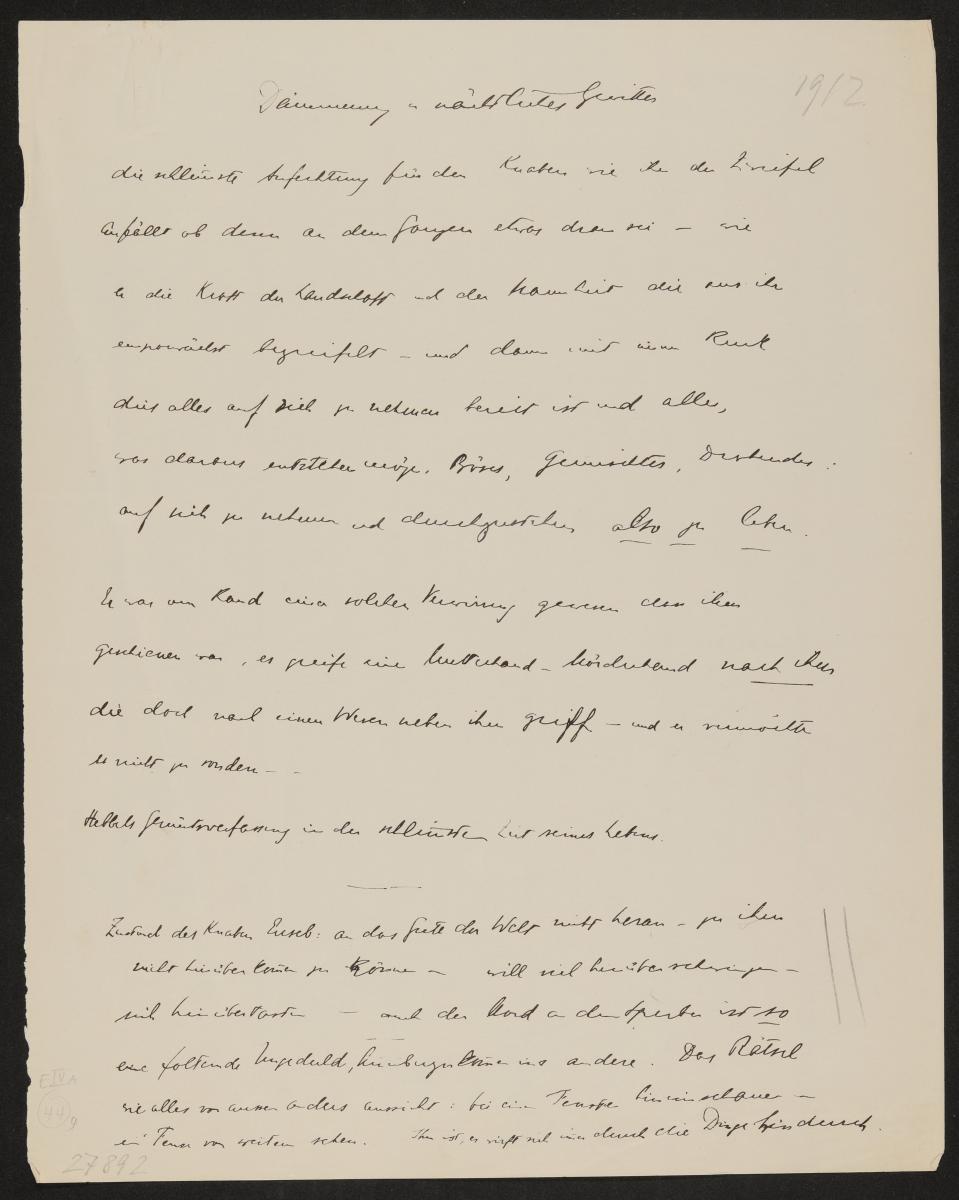 Dämmerung u nächtliches Gewitter
1912
die schlimmste Anfechtung für den Knaben wie ihn der Zweifel
anfällt ob denn an dem Ganzen etwas dran sei – wie
er die Kraft der Landschaft und der die aus ihr
emporwächst begreifelt – und dann mit einem Ruck
dies alles auf sich zu nehmen bereit ist und alles,
was daraus entstehen möge. Böses, Gemischtes, :
auf sich zu nehmen und durchzustehen also zu leben.
Er war am Rand einer solchen Verwirrung gewesen dass ihm
geschienen war, es greife eine Mutterhand – Mörderhand nach ihm
die doch nach einem Wesen neben ihm griff – und er vermochte
es nicht zu sondern – –
Hebbels Gemütsverfassung in der schlimmsten Zeit seines Lebens.
Zustand des Knaben Euseb: an das Gute der Welt nicht heran – zu ihm
nicht hinüber können zu können – will sich hinüberschwingen –
sich hinübertasten – auch der Mord an dem Sperber ist so
eine folternde Ungeduld, ins andere. Das Rätsel
wie alles von aussen anders aussieht: bei einem Fenster hineinschauen –
ein Fenster von weitem sehen. Ihm ist, es wirft sich immer durch die Dinge hindurch.
E IV A
44
9
27892